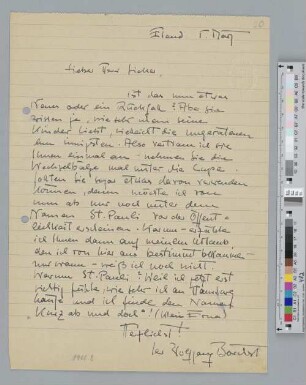 Irland 1. Mai
Lieber Herr
ist das nun etwas
Neues oder ein Rückfall? Aber Sie
wissen ja, wie sehr man seine
Kinder liebt, vielleicht die ungeratenen
am innigsten. Also vertraue ich sie
Ihnen einmal an - nehmen Sie die
Wechselbälge mal unter die Lupe.
Sollten Sie sogar etwas davon verwenden
können, dann möchte ich von
nun ab nur noch unter dem
Namen St. Pauli vor der Öffent=
lichkeit erscheinen. Warum - erzähle
ich Ihnen dann auf meinem Urlaub,
den ich von hier aus bestimmt bekomme -
nur wann - weiß ich noch nicht.
Warum St. Pauli? Weil ich jetzt erst
richtig fühle wie sehr ich an Hamburg
hänge und ich finde den Namen
kurz ab und doch!
Herzlichst!
Ihr Wolfgang Borchert